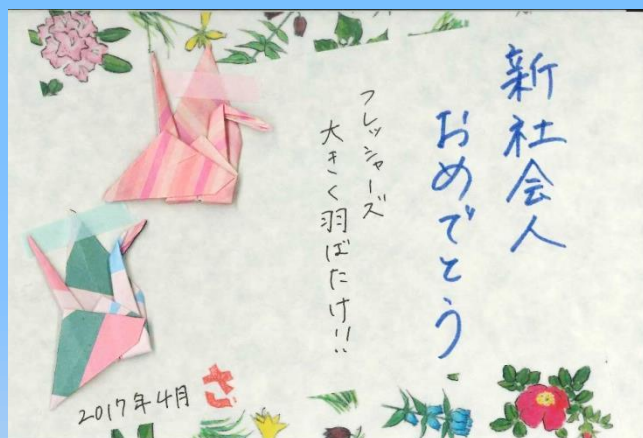 新社会人
おめでとう
フレッシャーズ
大きく羽ばたけ!!
2017年4月